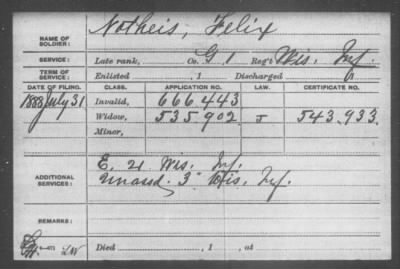 NAME OF SOLDIER: Notheis, Felix
SERVICE: Late rank, Co. G 1 Reg't Wis. Inf.
TERM OF SERVICE: Enlisted , 1 Discharged
DATE OF FILING. CLASS. APPLICATION NO. LAW. CERTIFICATE NO.
1888 July 31 Invalid, 666.443
Widow, 535.902. J 543.933.
Minor,
ADDITIONAL SERVICES: E. 21 Wis. Inf.
Unassd. 3" Wis. Inf.
REMARKS:
Died , 1 , at